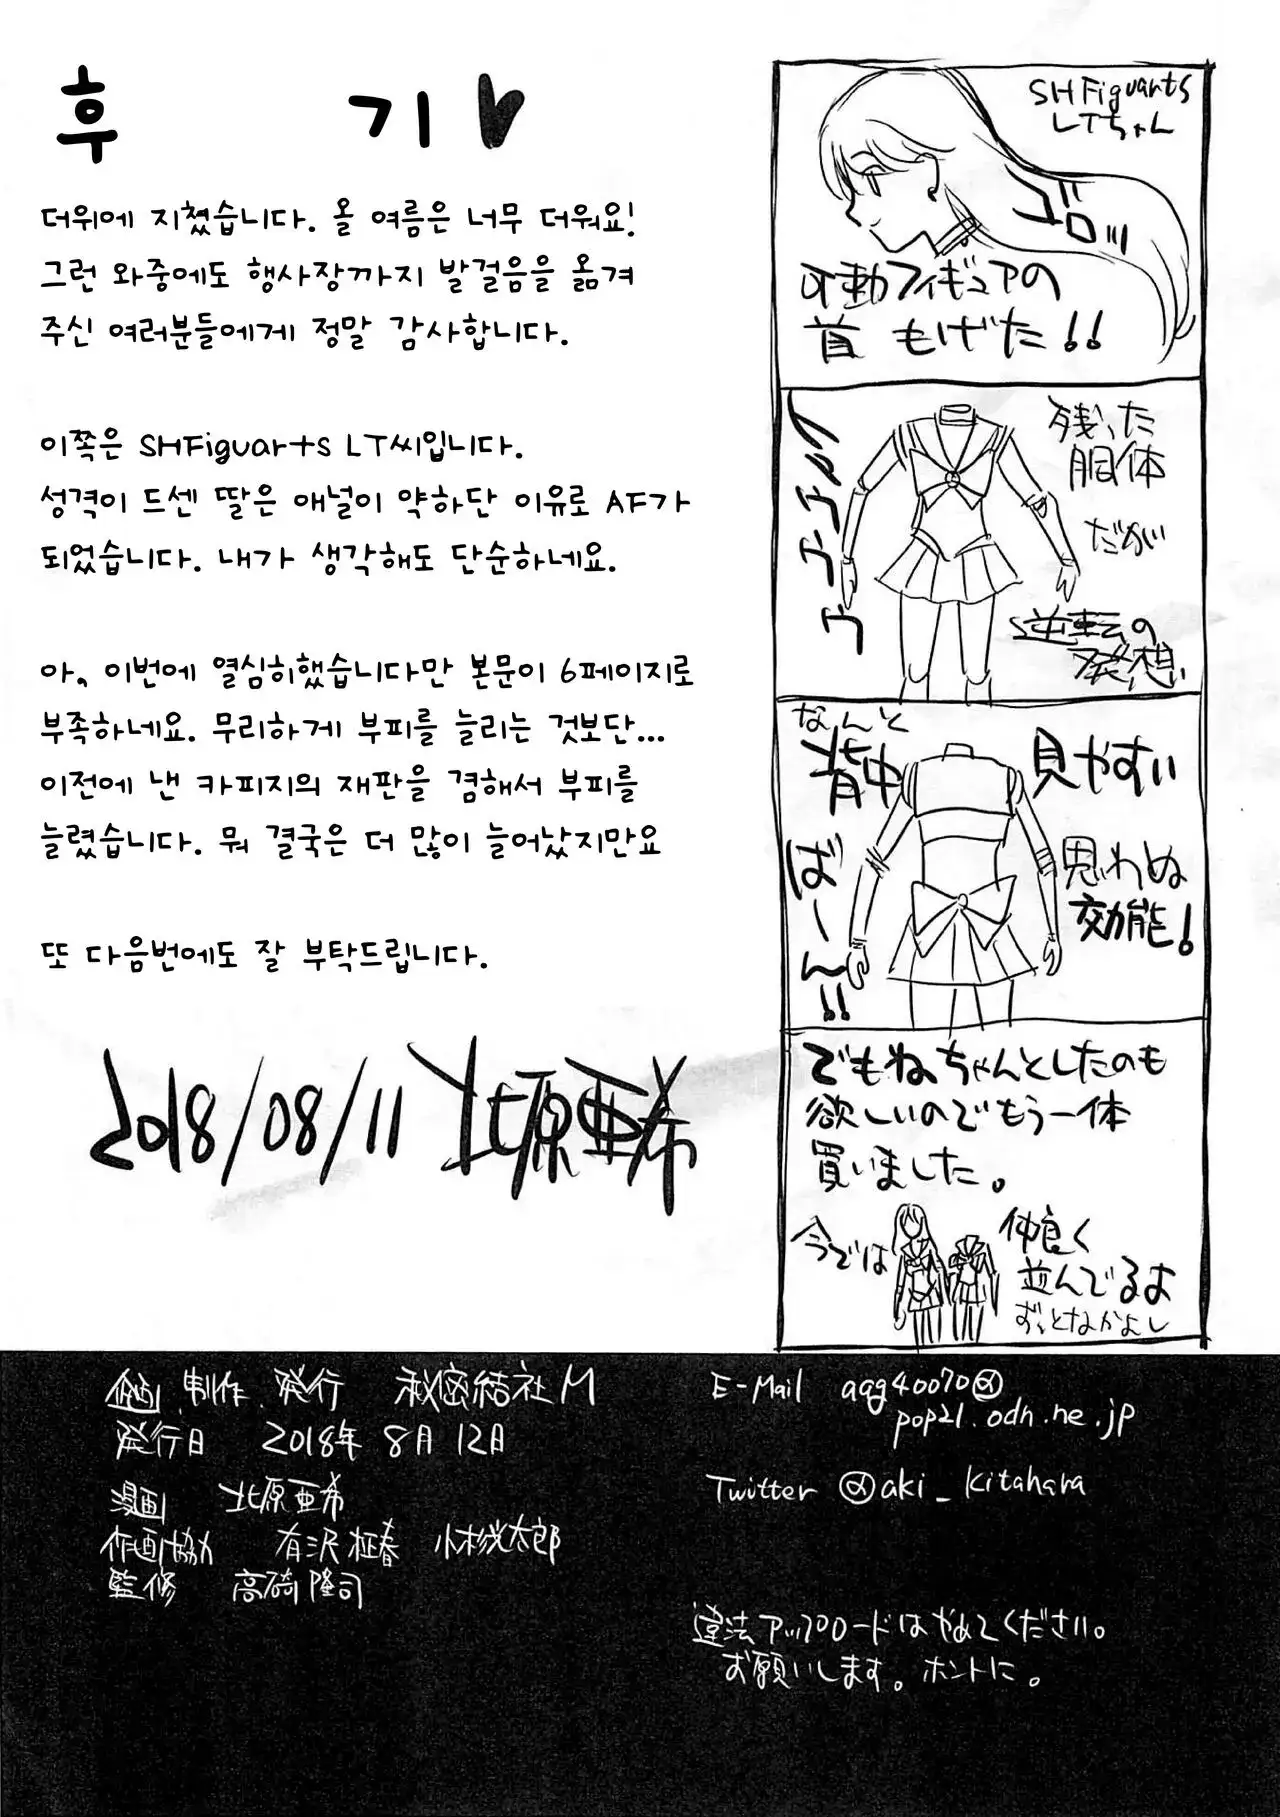 후 기
더위에 지쳤습니다. 올 여름은 너무 더워요!
그런 와중에도 행사장까지 발걸음을 옮겨
주신 여러분들에게 정말 감사합니다.
이쪽은 SHFiguarts LT씨입니다.
성격이 드센 딸은 애널이 약하단 이유로 AF가
되었습니다. 내가 생각해도 단순하네요.
아, 이번에 열심히했습니다만 본문이 6페이지로
부족하네요. 무리하게 부피를 늘리는 것보단...
이전에 낸 카피지의 재판을 겸해서 부피를
늘렸습니다. 뭐 결국은 더 많이 늘어났지만요
또 다음번에도 잘 부탁드립니다.
2018/08/11 北原亜希
SHFiguarts
LTちゃん
ゴロッ
可動フィギュアの
首 もげた!!
残った
胴体
だが
逆転の
発想
なんと
背中
見やすい
ばーん!!
思わぬ
効能!
でもね、ちゃんとしたのも
欲しいのでもう一体
買いました。
今では
仲良く
並んでるよ
ずっとなかよし
企画.制作.発行 秘密結社M
発行日 2018年 8月 12日
漫画 北原亜希
作画協力 有沢柾春 小杉光太郎
監修 高崎隆司
E-Mail aqg40070@
pop21.odn.ne.jp
Twitter @aki_kitahara
違法アップロードはやめてください。
お願いします。ホントに。